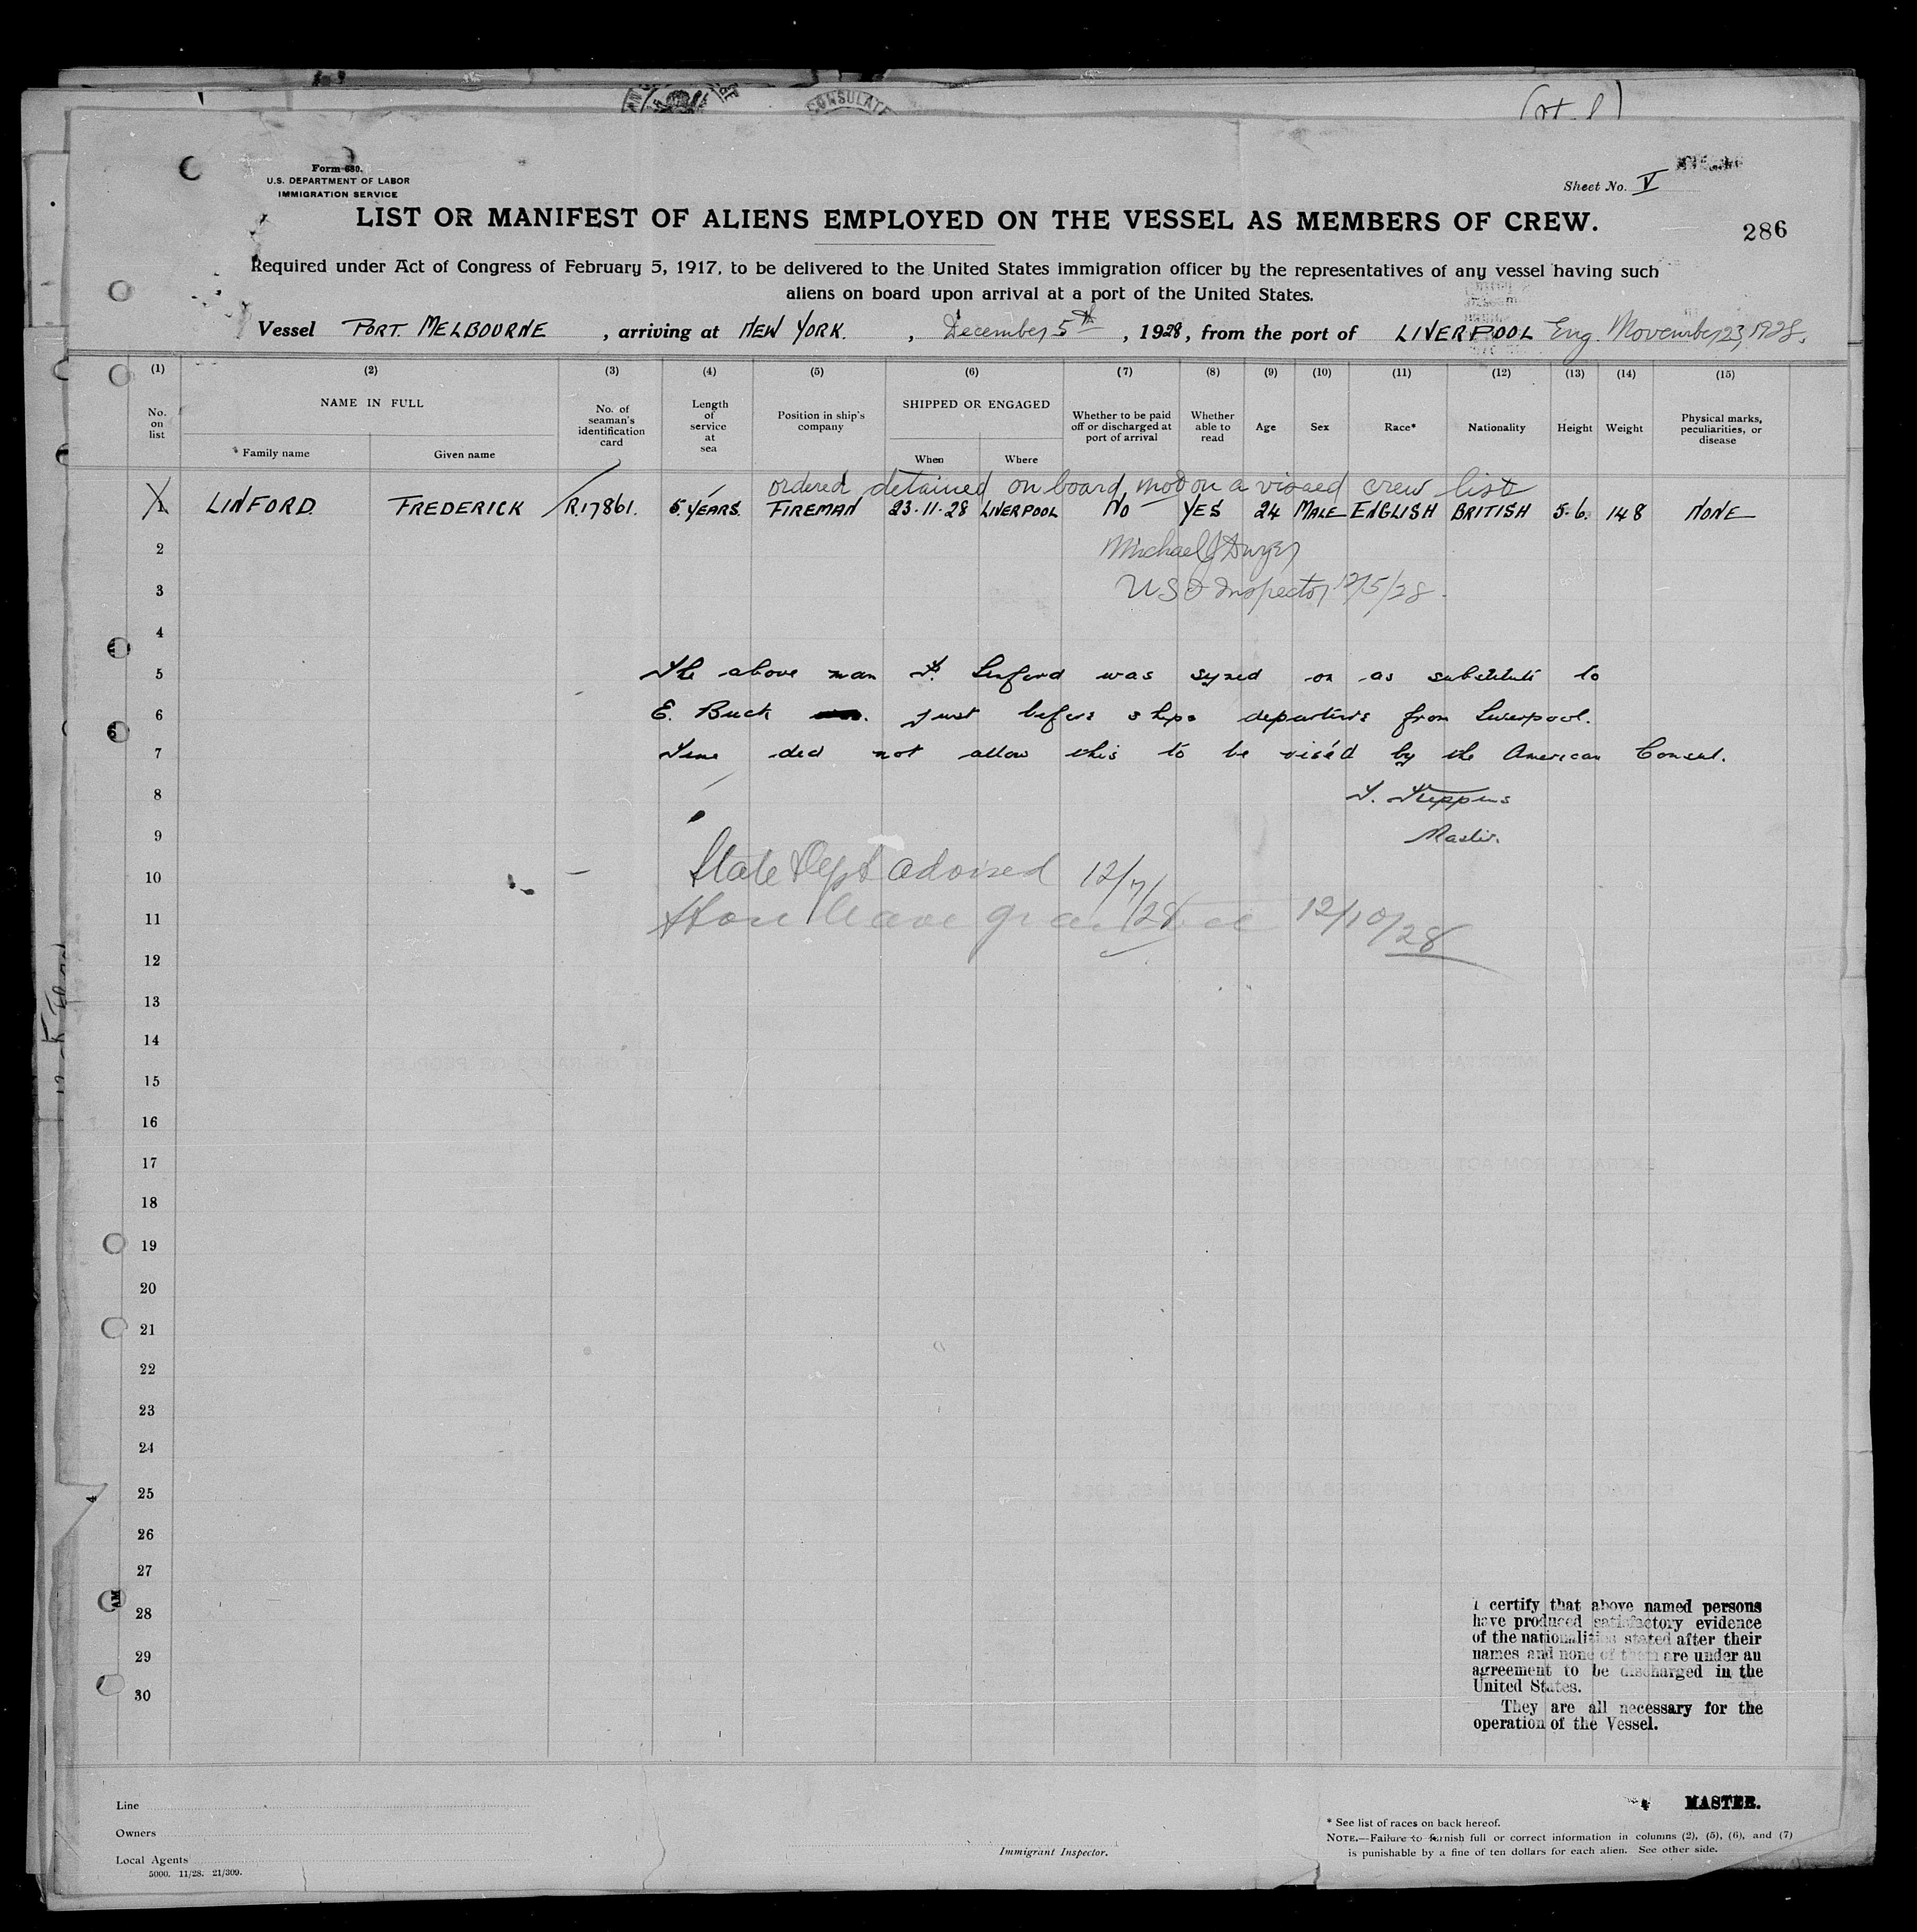 CONSULATE
Form 680.
U.S. DEPARTMENT OF LABOR
IMMIGRATION SERVICE
Sheet No. V
LIST OR MANIFEST OF ALIENS EMPLOYED ON THE VESSEL AS MEMBERS OF CREW.
286
Required under Act of Congress of February 5, 1917, to be delivered to the United States immigration officer by the representatives of any vessel having such
aliens on board upon arrival at a port of the United States.
Vessel PORT MELBOURNE, arriving at NEW YORK., December 5th, 1928, from the port of LIVERPOOL Eng. November 23, 1928.
(1) (2) (3) (4) (5) (6) (7) (8) (9) (10) (11) (12) (13) (14) (15)
No. on list
NAME IN FULL
* Family name
Given name
No. of seaman's identification card
Length of service at sea
Position in ship's company
SHIPPED OR ENGAGED
When
Where
Whether to be paid off or discharged at port of arrival
Whether able to read
Age
Sex
Race*
Nationality
Height
Weight
Physical marks, peculiarities, or disease
ordered detained on board, not on a visaed crew list
1 LINFORD. FREDERICK R.17861. 5. YEARS. FIREMAN 23.11.28 LIVERPOOL NO YES 24 MALE ENGLISH BRITISH 5.6. 148 NONE
2 Michael J Dwyer
3 US Inspector 12/5/28.
4
5 The above man F. Linford was signed on as substitute to
6 E. Buck just before ships departure from Liverpool.
7 Time did not allow this to be visé'd by the American Consul.
8
9 Master.
10 State Dept advised 12/7/28
11 Shore leave granted 12/10/28
12
13
14
15
16
17
18
19
20
21
22
23
24
25
26
27
28
29
30
I certify that above named persons
have produced satisfactory evidence
of the nationalities stated after their
names and none of them are under an
agreement to be discharged in the
United States.
They are all necessary for the
operation of the Vessel.
MASTER.
Line
Owners
Local Agents
5000. 11/28. 21/309.
Immigrant Inspector.
* See list of races on back hereof.
NOTE.—Failure to furnish full or correct information in columns (2), (5), (6), and (7)
is punishable by a fine of ten dollars for each alien. See other side.